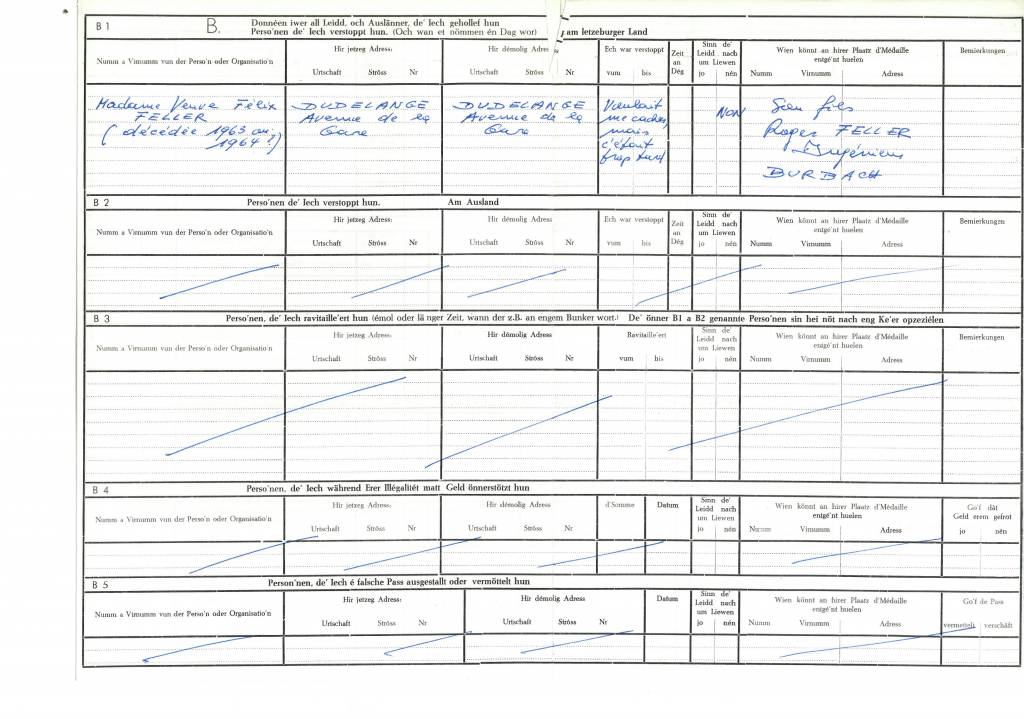 B 1
B. Donnéen iwer all Leidd, och Auslänner, de' Iech gehollef hun
Perso'nen de' Iech verstoppt hun. (Och wan et nömmen én Dag wor) am letzeburger Land
Numm a Virnumm vun der Perso'n oder Organisatio'n
Hir jetzeg Adress: Urtschaft Ströss Nr
Hir démolig Adress Urtschaft Ströss Nr
Ech war verstoppt vum bis
Zeit an Dég
Sinn de' Leidd nach um Liewen jo nén
Wien könnt an hirer Plaatz d'Médaille entgé'nt huelen Numm Virnumm Adress
Bemierkungen
Madame Veuve Félix
FELLER
(décédée 1963 ou
1964?)
DUDELANGE
Avenue de la
Gare
DUDELANGE
Avenue de la
Gare
Voulait
me cacher,
mais
c'était
trop tard
NON
Son fils
Roger FELLER
Ingénieur
BURBACH
B 2 Perso'nen de' Iech verstoppt hun. Am Ausland
Numm a Virnumm vun der Perso'n oder Organisatio'n
Hir jetzeg Adress: Urtschaft Ströss Nr
Hir démolig Adress Urtschaft Ströss Nr
Ech war verstoppt vum bis
Zeit an Dég
Sinn de' Leidd nach um Liewen jo nén
Wien könnt an hirer Plaatz d'Médaille entgé'nt huelen Numm Virnumm Adress
Bemierkungen
B 3 Perso'nen, de' Iech ravitaille'ert hun (émol oder lä nger Zeit, wann der z.B. an engem Bunker wort.) De' önner B1 a B2 genannte Perso'nen sin hei nöt nach eng Ke'er opzeziélen
Numm a Virnumm vun der Perso'n oder Organisatio'n
Hir jetzeg Adress: Urtschaft Ströss Nr
Hir démolig Adress Urtschaft Ströss Nr
Ravitaille'ert vum bis
Sinn de' Leidd nach um Liewen jo nén
Wien könnt an hirer Plaatz d'Médaille entgé'nt huelen Numm Virnumm Adress
Bemierkungen
B 4 Perso'nen, de' Iech während Erer Illégalitét matt Geld önnerstötzt hun
Numm a Virnumm vun der Perso'n oder Organisatio'n
Hir jetzeg Adress: Urtschaft Ströss Nr
Hir démolig Adress Urtschaft Ströss Nr
d'Somme
Datum
Sinn de' Leidd nach um Liewen jo nén
Wien könnt an hirer Plaatz d'Médaille entgé'nt huelen Numm Virnumm Adress
Go'f dât Geld erem gefrot jo nén
B 5 Person'nen, de' Iech é falsche Pass ausgestallt oder vermöttelt hun
Numm a Virnumm vun der Perso'n oder Organisatio'n
Hir jetzeg Adress: Urtschaft Ströss Nr
Hir démolig Adress: Urtschaft Ströss Nr
Datum
Sinn de' Leidd nach um Liewen jo nén
Wien könnt an hirer Plaatz d'Médaille entgé'nt huelen Numm Virnumm Adress
Go'f de Pass vermettelt verschäft